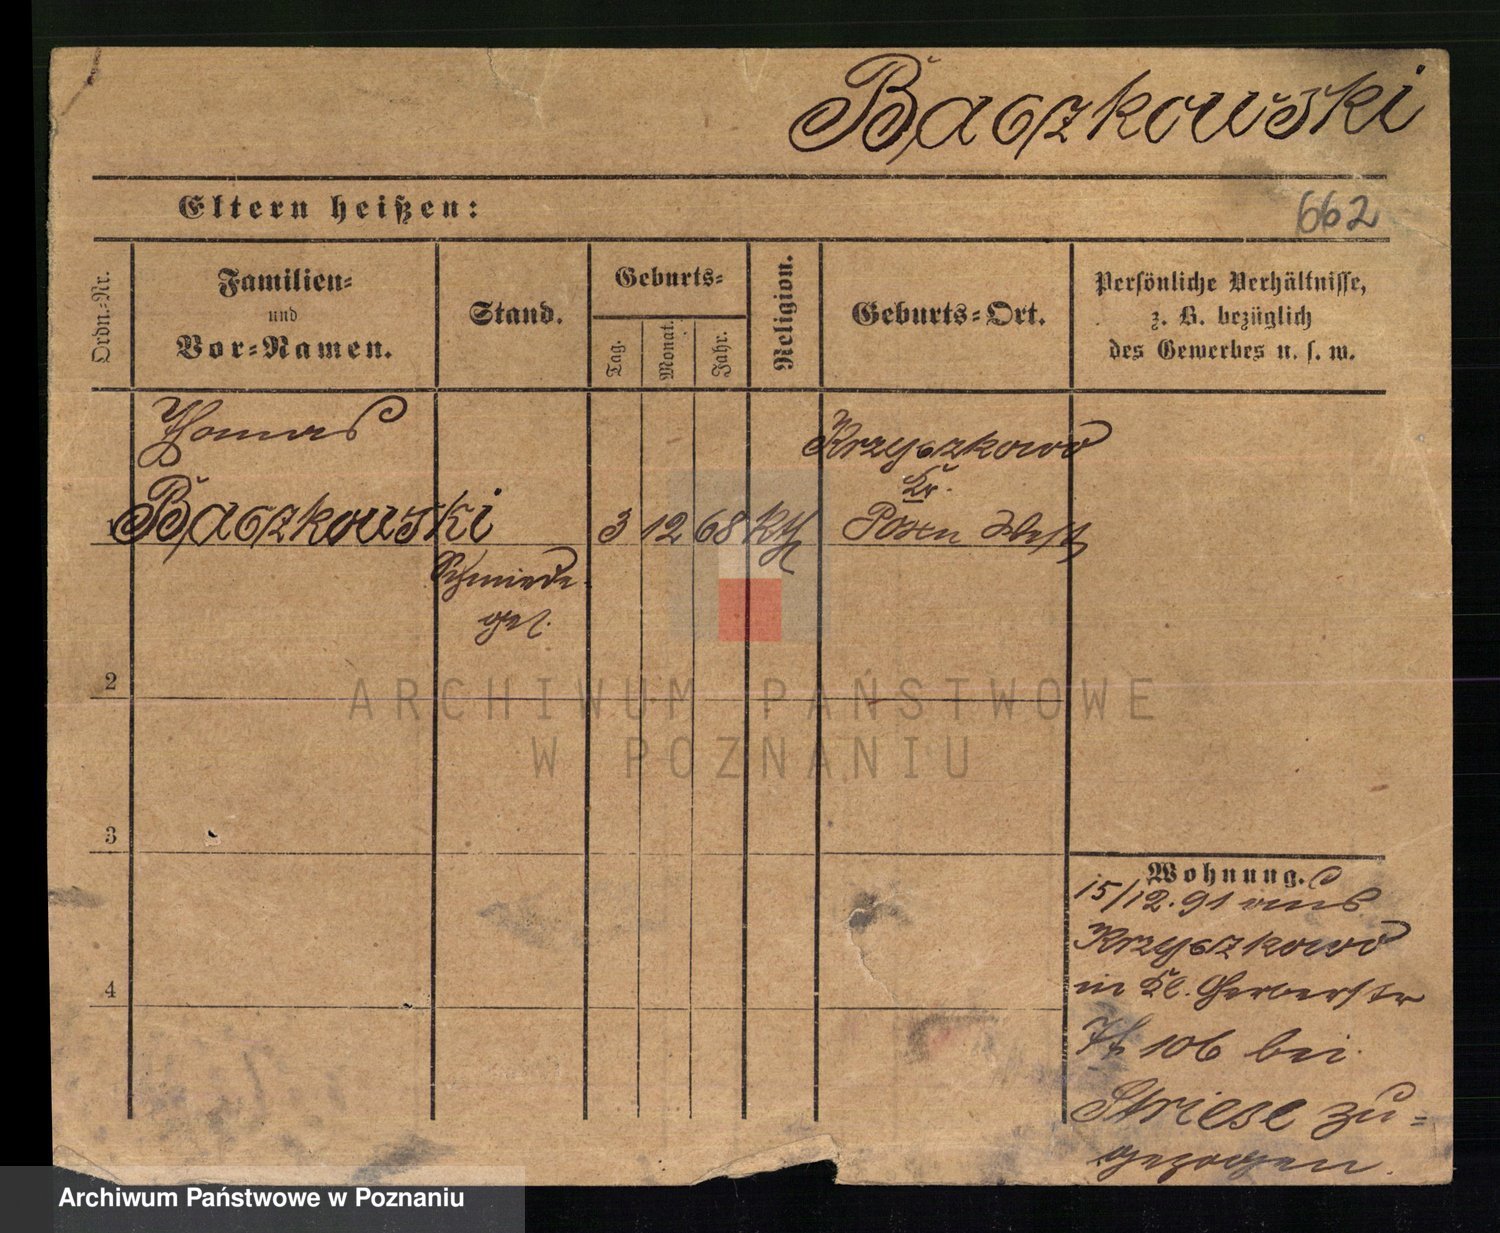 Baczkowski
Eltern heißen:
662
Ordn.-Nr.
Familien-
und
Vor-Namen.
Stand.
Geburts-
Tag.
Monat.
Jahr.
Religion.
Geburts-Ort.
Persönliche Verhältnisse,
z. B. bezüglich
des Gewerbes u. s. w.
Thomas
Baczkowski
3 12 68 Kth
Krzyszkowo
Kr.
Posen West
1
Schmiede-
ges.
2
3
4
Wohnung.
15/12.91 aus
Krzyszkowo
in Kl. Gerberstr
106 bei
Striese zu-
gezogen.
ARCHIWUM PAŃSTWOWE
W POZNANIU
Archiwum Państwowe w Poznaniu